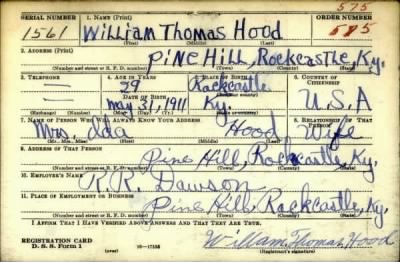 575
SERIAL NUMBER 1. NAME (Print) ORDER NUMBER
1561 William Thomas Hood 585
(First) (Middle) (Last)
2. ADDRESS (Print)
Pine Hill, Rockcastle, Ky.
(Number and street or R. F. D. number) (Town) (County) (State)
3. TELEPHONE 4. AGE IN YEARS 5. PLACE OF BIRTH 6. COUNTRY OF CITIZENSHIP
— 29 Rockcastle
DATE OF BIRTH
— May 31, 1911 Ky. U.S.A
(Exchange) (Number) (Mo.) (Day) (Yr.) (State or country)
7. NAME OF PERSON WHO WILL ALWAYS KNOW YOUR ADDRESS 8. RELATIONSHIP OF THAT PERSON
Mrs. Ida Hood Wife
(Mr., Mrs., Miss) (First) (Middle) (Last)
9. ADDRESS OF THAT PERSON
Pine Hill, Rockcastle, Ky.
(Number and street or R. F. D. number) (Town) (County) (State)
10. EMPLOYER'S NAME
T. R. Dawson
11. PLACE OF EMPLOYMENT OR BUSINESS
Pine Hill, Rockcastle, Ky.
(Number and street or R. F. D. number) (Town) (County) (State)
I AFFIRM THAT I HAVE VERIFIED ABOVE ANSWERS AND THAT THEY ARE TRUE.
REGISTRATION CARD
D. S. S. Form 1 16—17105 William Thomas Hood
(Registrant's signature)